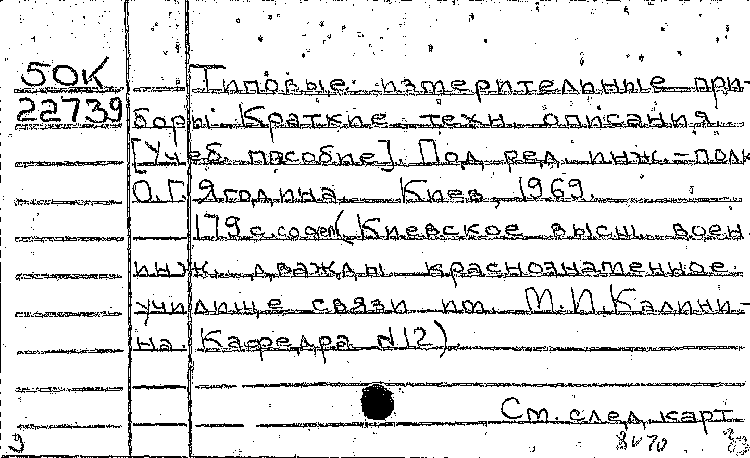 50К Типовые измерительные при-
22739 боры. Краткие техн. описания.
[Учеб. пособие]. Под ред. инж.-полк.
О.Г. Ягодина. Киев, 1969.
179 с. содерж (Киевское высш. воен.
инж. дважды краснознаменное
училище связи им. М.И. Калини-
на. Кафедра №12).
См. след. карт.